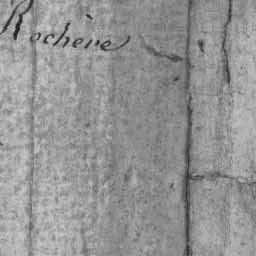 Rochère